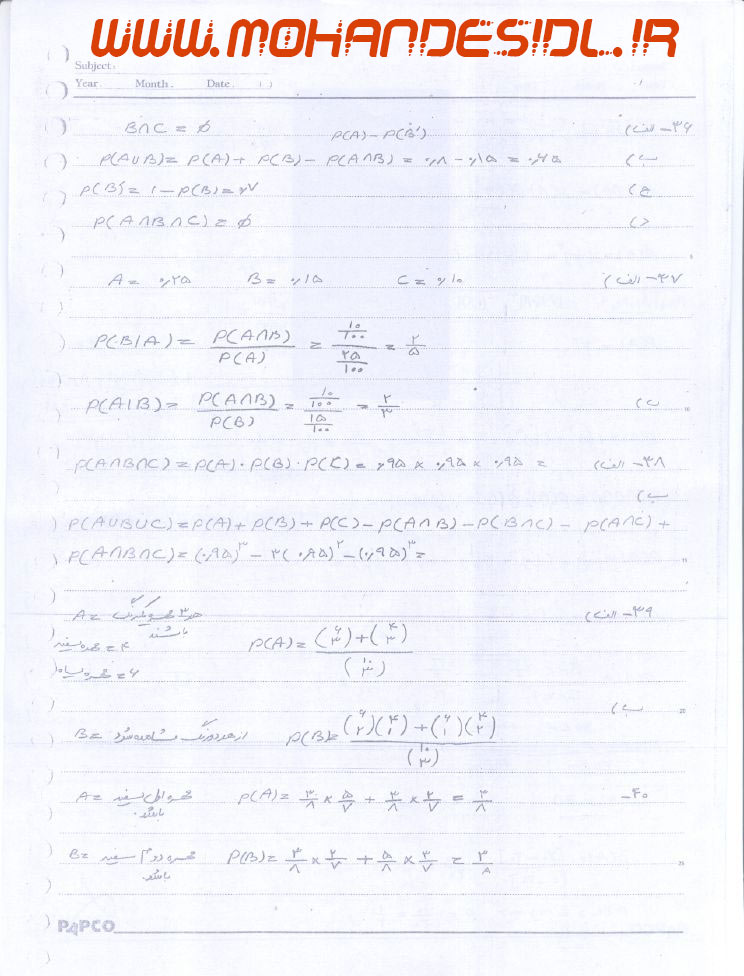 WWW.MOHANDESIDL.IR
Subject:
Year. Month. Date. ( )
۳۶- الف) B∩C = ∅ P(A) - P(B')
ب) P(A∪B) = P(A) + P(B) - P(A∩B) = ۰٫۸ - ۰٫۱۵ = ۰٫۶۵
ج) P(B') = 1 - P(B) = ۰٫۷
د) P(A∩B∩C) = ∅
۳۷- الف) A = ۰٫۲۵ B = ۰٫۱۵ C = ۰٫۱۰
P(B|A) = P(A∩B) / P(A) = (۱۰/۱۰۰) / (۲۵/۱۰۰) = ۲/۵
ب) P(A|B) = P(A∩B) / P(B) = (۱۰/۱۰۰) / (۱۵/۱۰۰) = ۲/۳
۳۸- الف) P(A∩B∩C) = P(A) · P(B) · P(C) = ۰٫۹۵ × ۰٫۹۵ × ۰٫۹۵ =
ب)
P(A∪B∪C) = P(A) + P(B) + P(C) - P(A∩B) - P(B∩C) - P(A∩C) +
P(A∩B∩C) = (۰٫۹۵)^۳ - ۳(۰٫۹۵)^۲ - (۰٫۹۵)^۳ =
۳۹- الف) A = هر ۳ مهره یکرنگ باشند
۴ = مهره سفید
۶ = مهره سیاه
P(A) = ((۶ ۳) + (۴ ۳)) / (۱۰ ۳)
ب) B = از هر دو رنگ مشاهده شود P(B) = ((۶ ۲)(۴ ۱) + (۶ ۱)(۴ ۲)) / (۱۰ ۳)
۴۰- A = مهره اول سفید باشد. P(A) = ۳/۸ × ۵/۷ + ۳/۸ × ۲/۷ = ۳/۸
B = مهره دوم سفید باشد P(B) = ۳/۸ × ۲/۷ + ۵/۸ × ۳/۷ = ۳/۸
PAPCO